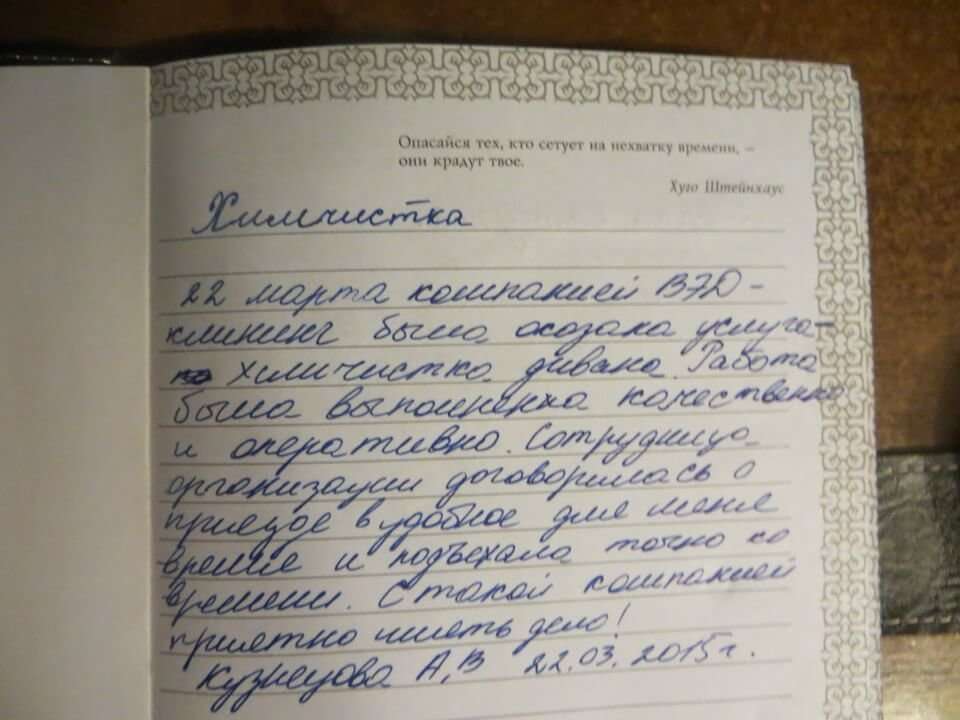 Опасайся тех, кто сетует на нехватку времени, –
они крадут твое.
Хуго Штейнхаус
Химчистка
22 марта компанией ВЭД-
клининг была оказана услуга-
химчистка дивана. Работа
была выполненна качественно
и оперативно. Сотрудница
организации договорилась о
приезде в удобное для меня
время и подъехала точно ко
времени. С такой компанией
приятно иметь дело!
Кузнецова А,В 22.03.2015г.